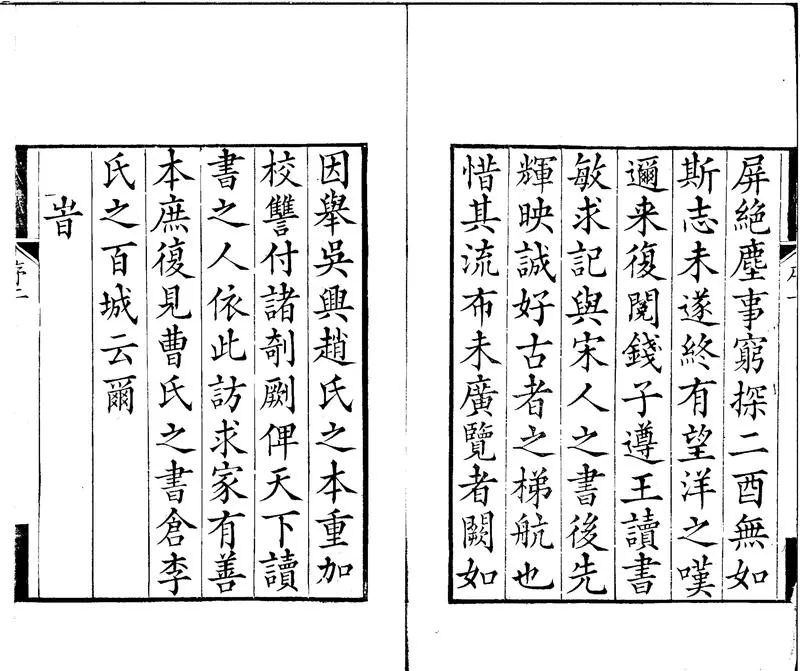 屏絕塵事窮探二酉無如
斯志未遂終有望洋之嘆
邇来復閱錢子遵王讀書
敏求記與宋人之書後先
輝映誠好古者之梯航也
惜其流布未廣覽者闕如
因舉吳興趙氏之本重加
校讐付諸剞劂俾天下讀
書之人依此訪求家有善
本庶復見曹氏之書倉李
氏之百城云爾
旹
序二